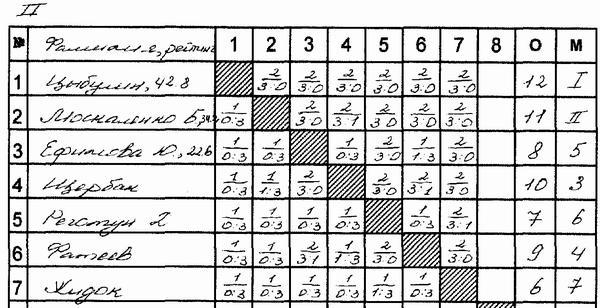 II
№ Фамилия, рейтинг 1 2 3 4 5 6 7 8 О М
1 Цыбулин, 42.8 2/3:0 2/3:0 2/3:0 2/3:0 2/3:0 2/3:0 12 I
2 Москаленко Б, 1/0:3 2/3:0 2/3:1 2/3:0 2/3:0 2/3:0 11 II
3 Ефимова Ю., 22.6 1/0:3 1/0:3 1/0:3 2/3:0 1/1:3 2/3:0 8 5
4 Щербак 1/0:3 1/1:3 2/3:0 2/3:0 2/3:1 2/3:0 10 3
5 1/0:3 1/0:3 1/0:3 1/0:3 1/0:3 2/3:1 7 6
6 Фатеев 1/0:3 1/0:3 2/3:1 1/1:3 2/3:0 2/3:0 9 4
7 Жидок 1/0:3 1/0:3 1/0:3 1/0:3 1/1:3 1/0:3 6 7